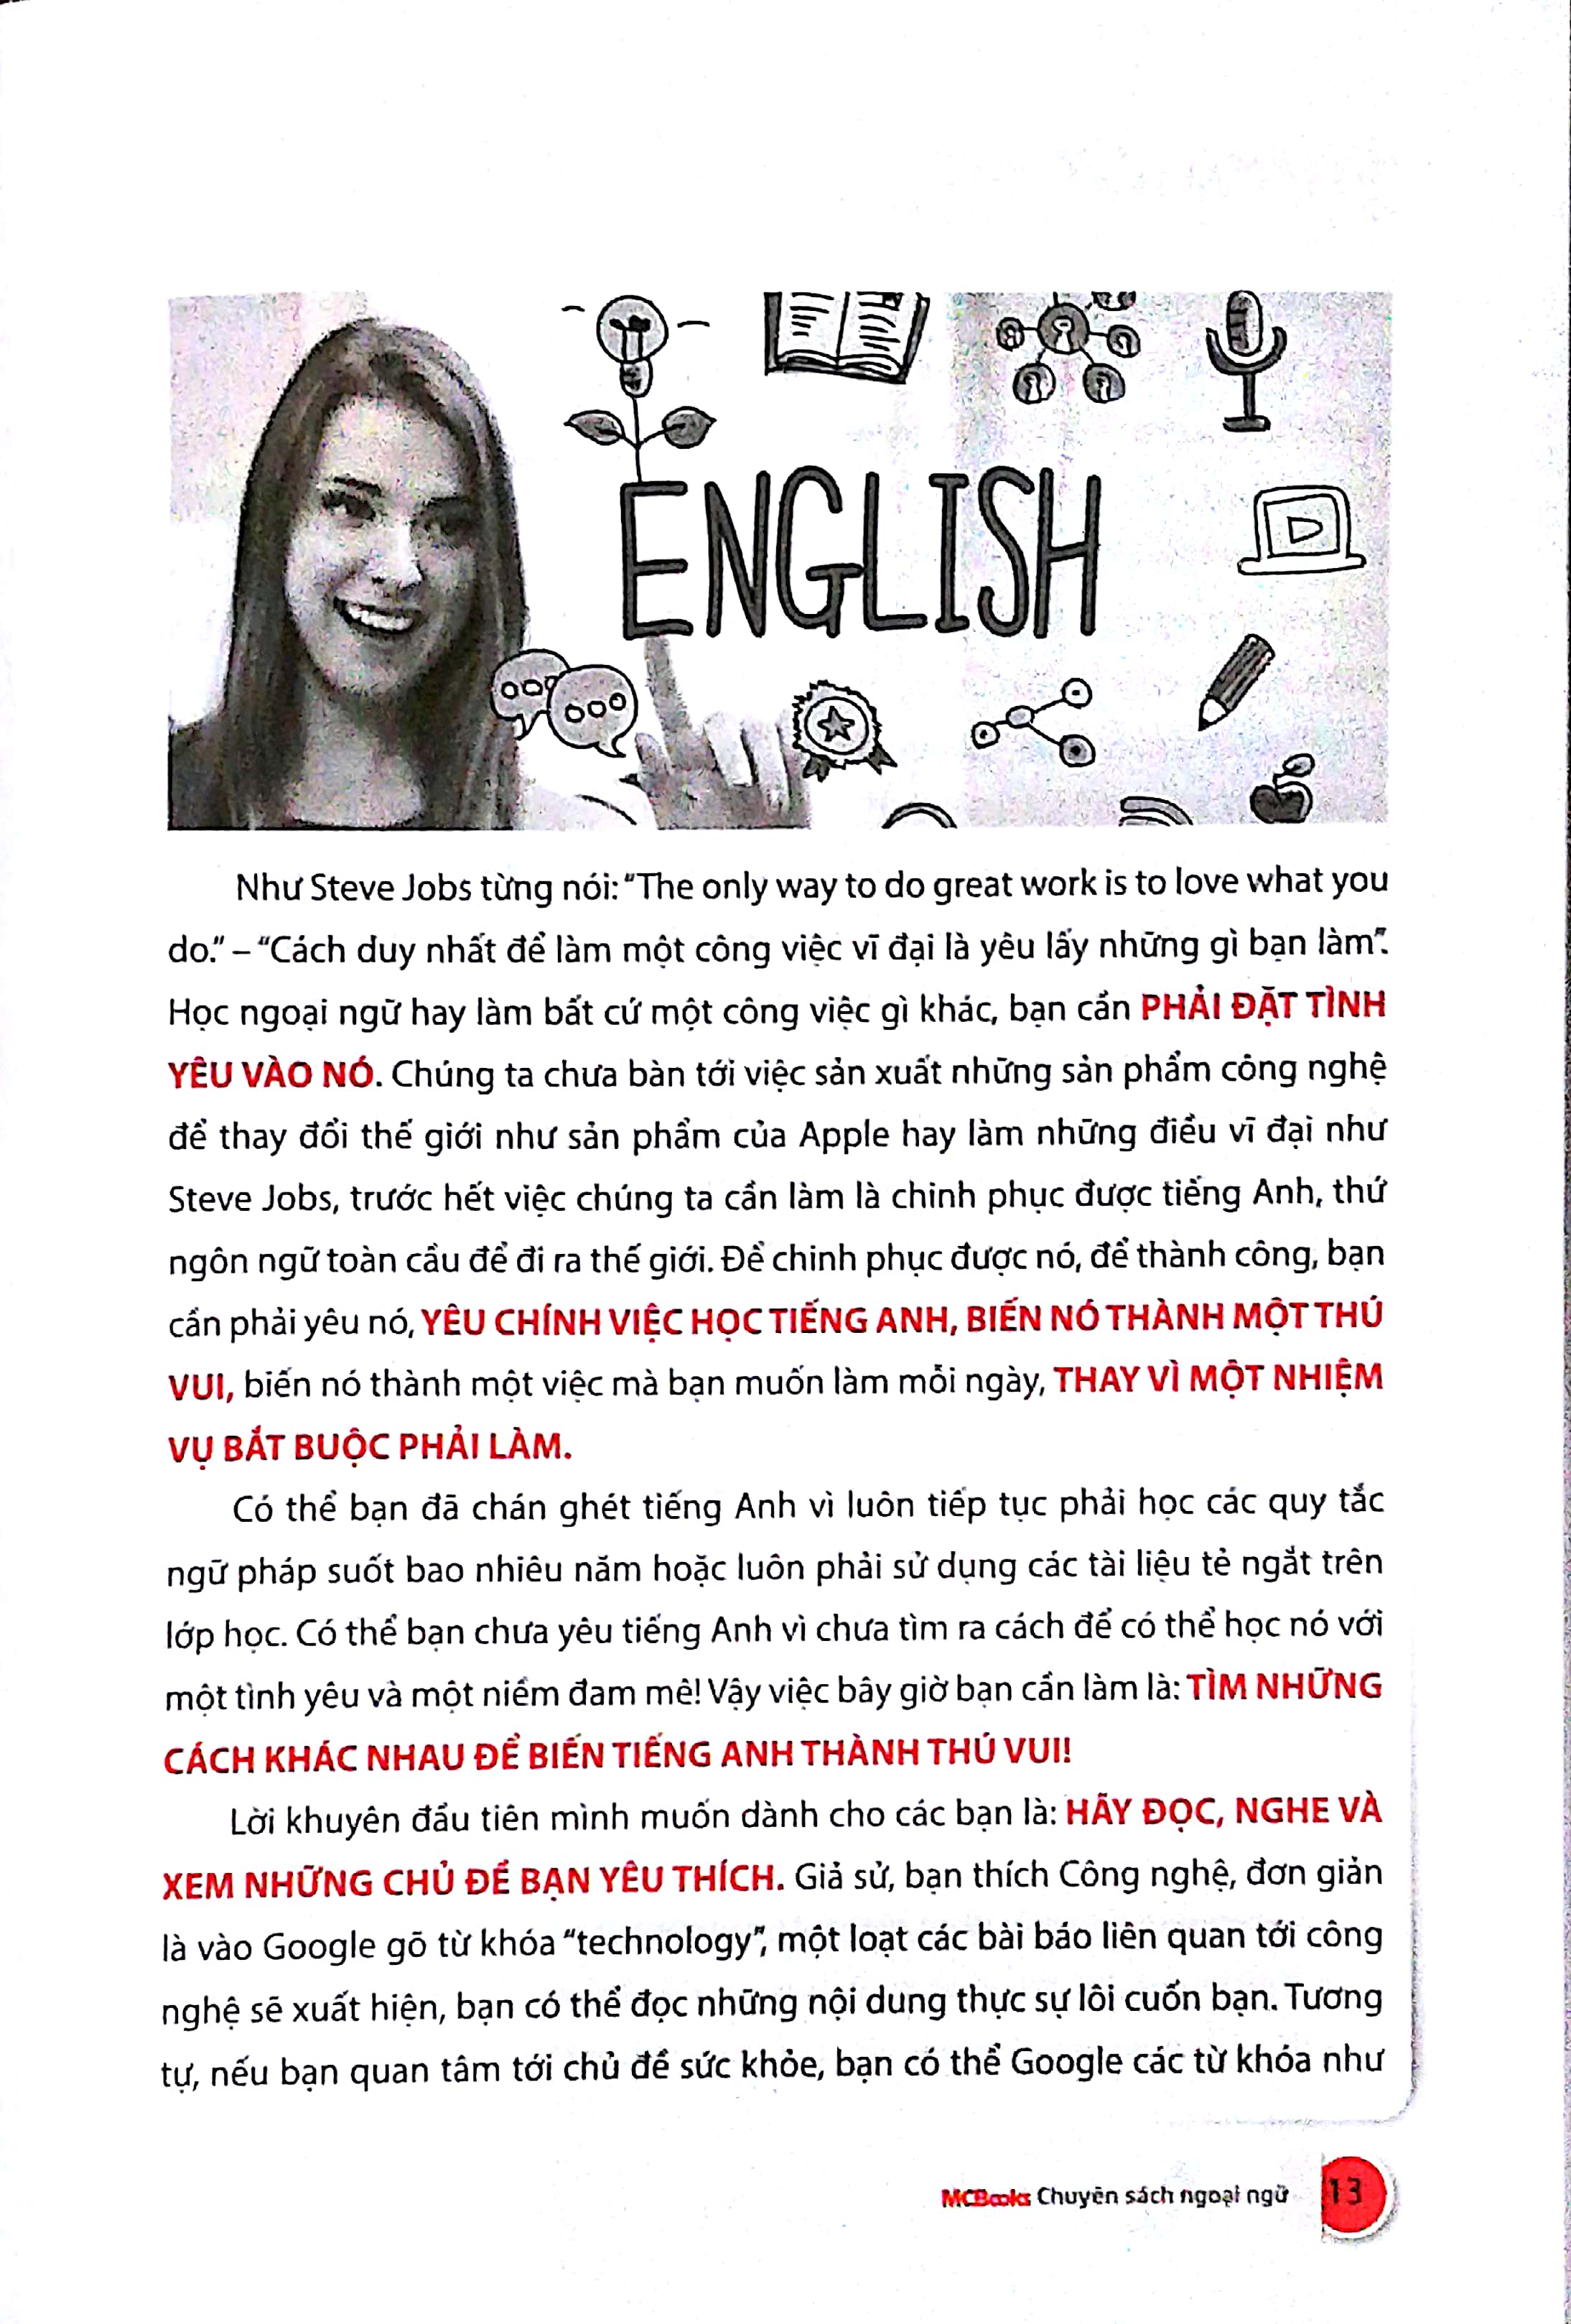 ENGLISH
Như Steve Jobs từng nói: “The only way to do great work is to love what you
do.” – “Cách duy nhất để làm một công việc vĩ đại là yêu lấy những gì bạn làm”.
Học ngoại ngữ hay làm bất cứ một công việc gì khác, bạn cần PHẢI ĐẶT TÌNH
YÊU VÀO NÓ. Chúng ta chưa bàn tới việc sản xuất những sản phẩm công nghệ
để thay đổi thế giới như sản phẩm của Apple hay làm những điều vĩ đại như
Steve Jobs, trước hết việc chúng ta cần làm là chinh phục được tiếng Anh, thứ
ngôn ngữ toàn cầu để đi ra thế giới. Để chinh phục được nó, để thành công, bạn
cần phải yêu nó, YÊU CHÍNH VIỆC HỌC TIẾNG ANH, BIẾN NÓ THÀNH MỘT THÚ
VUI, biến nó thành một việc mà bạn muốn làm mỗi ngày, THAY VÌ MỘT NHIỆM
VỤ BẮT BUỘC PHẢI LÀM.
Có thể bạn đã chán ghét tiếng Anh vì luôn tiếp tục phải học các quy tắc
ngữ pháp suốt bao nhiêu năm hoặc luôn phải sử dụng các tài liệu tẻ ngắt trên
lớp học. Có thể bạn chưa yêu tiếng Anh vì chưa tìm ra cách để có thể học nó với
một tình yêu và một niềm đam mê! Vậy việc bây giờ bạn cần làm là: TÌM NHỮNG
CÁCH KHÁC NHAU ĐỂ BIẾN TIẾNG ANH THÀNH THÚ VUI!
Lời khuyên đầu tiên mình muốn dành cho các bạn là: HÃY ĐỌC, NGHE VÀ
XEM NHỮNG CHỦ ĐỀ BẠN YÊU THÍCH. Giả sử, bạn thích Công nghệ, đơn giản
là vào Google gõ từ khóa “technology”, một loạt các bài báo liên quan tới công
nghệ sẽ xuất hiện, bạn có thể đọc những nội dung thực sự lôi cuốn bạn. Tương
tự, nếu bạn quan tâm tới chủ đề sức khỏe, bạn có thể Google các từ khóa như
MCBooks Chuyên sách ngoại ngữ 13